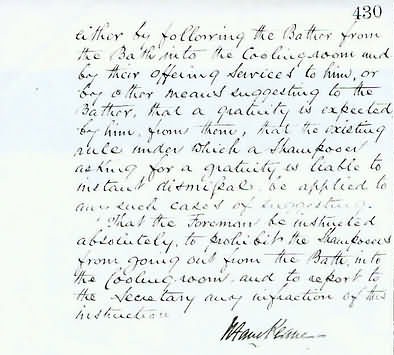 430
either by following the Bather from
the Bath into the Cooling room and
by their offering services to him, or
by other means suggesting to the
Bather, that a gratuity is expected
by him, from them, that the existing
rule under which a Shampooer
asking for a gratuity is liable to
instant dismissal be applied to
any such cases of suggesting.
That the Foreman be instructed
absolutely, to prohibit the Shampooers
from going out from the Bath, into
the Cooling room and to report to
the Secretary any infraction of this
instruction